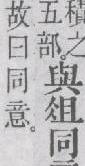 積之
五部。與俎同
故曰同意。